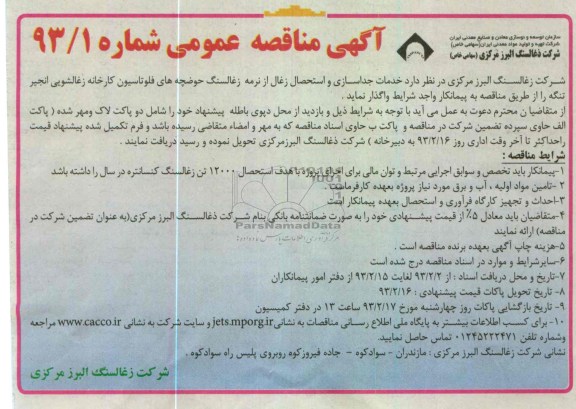 سازمان توسعه و نوسازی معادن و صنایع معدنی ایران
شرکت تهیه و تولید مواد معدنی ایران(سهامی خاص)
شرکت ذغالسنگ البرز مرکزی (سهامی خاص)
آگهی مناقصه عمومی شماره ۹۳/۱
شـرکت زغالسـنگ البرز مرکزی در نظر دارد خدمات جداسـازی و استحصال زغال از نرمه زغالسنگ حوضچه های فلوتاسیون کارخانه زغالشویی انجیر
تنگه را از طریق مناقصه به پیمانکار واجد شرایط واگذار نماید .
از متقاضیان محترم دعوت به عمل می آید با توجه به شرایط ذیل و بازدید از محل دپوی باطله پیشنهاد خود را شامل دو پاکت لاک ومهر شده ( پاکت
الف حاوی سپرده تضمین شرکت در مناقصه و پاکت ب حاوی اسناد مناقصه که به مهر و امضاء متقاضی رسیده باشد و فرم تکمیل شده پیشنهاد قیمت
راحداکثر تا آخر وقت اداری روز ۹۳/۲/۱۶ به دبیرخانه ) شرکت ذغالسنگ البرزمرکزی تحویل نموده و رسید دریافت نمایند .
شرایط مناقصه :
۱-پیمانکار باید تخصص و سوابق اجرایی مرتبط و توان مالی برای اجرای پروژه با هدف استحصال ۱۲۰۰۰ تن زغالسنگ کنسانتره در سال را داشته باشد
۲-تامین مواد اولیه ، آب و برق مورد نیاز پروژه بعهده کارفرماست .
۳-احداث و تجهیز کارگاه فرآوری و استحصال بعهده پیمانکار است
۴-متقاضیان باید معادل ۵٪ از قیمت پیشـنهادی خود را به صورت ضمانتنامه بانکی بنام شـرکت ذغالسـنگ البرز مرکزی(به عنوان تضمین شرکت در
مناقصه) ارائه نمایند
ParsNamadData
۵-هزینه چاپ آگهی بعهده برنده مناقصه است .
۶-سایرشرایط و موارد در اسناد مناقصه درج شده است
۷-تاریخ و محل دریافت اسناد : از ۹۳/۲/۲ لغایت ۹۳/۲/۱۵ از دفتر امور پیمانکاران
۸- تاریخ تحویل پاکات قیمت پیشنهادی : ۹۳/۲/۱۶
۹- تاریخ بازگشایی پاکات روز چهارشنبه مورخ ۹۳/۲/۱۷ ساعت ۱۳ در دفتر کمیسیون
۱۰- برای کسـب اطلاعات بیشـتر به پایگاه ملی اطلاع رسـانی مناقصات به نشانی jets.mporg.ir و سایت شرکت به نشانی www.cacco.ir مراجعه
وشماره تلفن ۰۱۲۴۵۲۲۲۴۷۱ تماس حاصل نمایید
نشانی شرکت زغالسنگ البرز مرکزی : مازندران - سوادکوه - جاده فیروزکوه روبروی پلیس راه سوادکوه .
شرکت زغالسنگ البرز مرکزی